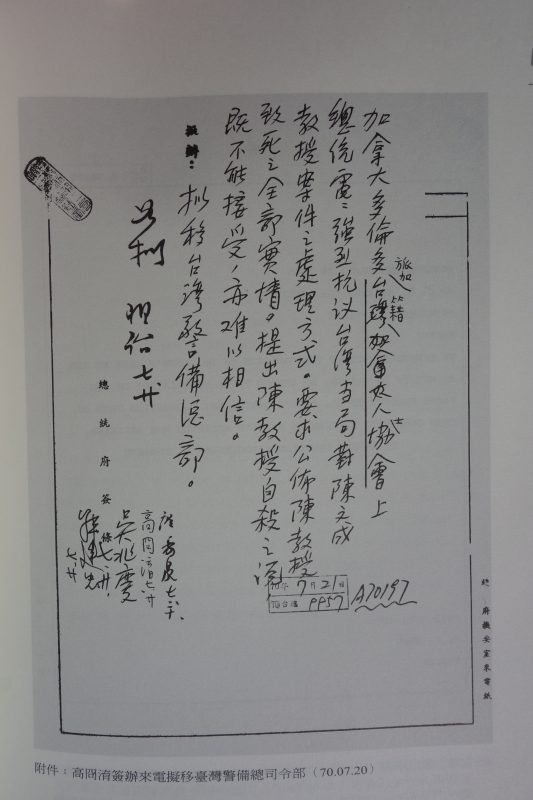 加拿大多倫多台灣旅加籍人士協會上
總統電：強烈抗议台湾当局對陳文成
教授案件之處理方式。要求公佈陳教授
致死之全部實情。提出陳教授自殺之說
既不能接受，亦难以相信。
擬辦：拟移台湾警備總部。
如擬
七廿
總統府簽條
高冏淯七廿
吳兆慶
70年7月21日
9957
A70197
府機要室來電紙
附件：高冏淯簽辦來電擬移臺灣警備總司令部（70.07.20）